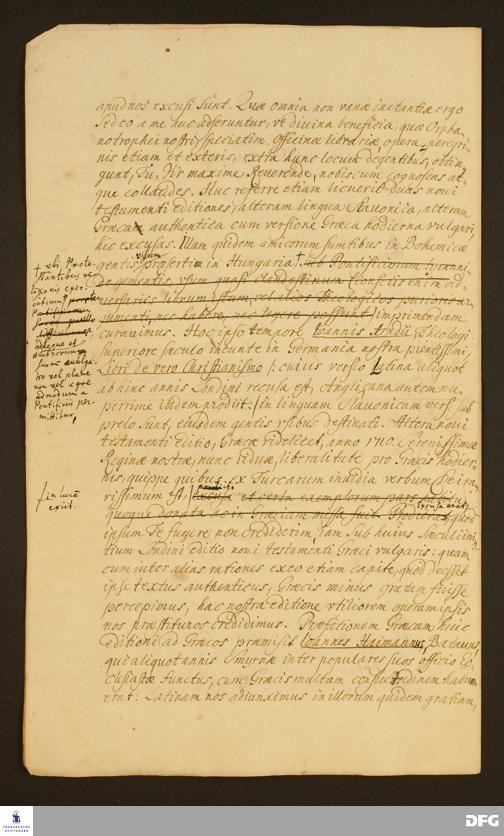 apud nos excusi sunt. Quæ omnia non vanæ iactantiæ ergo
sed eo a me huc adseruntur, vt divina beneficia, quæ Orpha-
notrophei nostri, speciatim, officinæ librariæ opera, peregri-
nis etiam et exteris, extra hunc locum degentibus, obtin-
gunt, Tu, Vir maxime Reverende, nobiscum cognoscas at-
que collaudes. Huc referre etiam licuerit duas novi
testamenti editiones, alteram lingua Slavonica, alteram
Græcam authentica cum versione Græca hodierna vulgari,
hic excusas. Illam quidem amicorum sumtibus in Bohemicæ
gentis, præsertim in Hungaria † sub Pontificiorum tyranni-
de gementis, vsum
usum
imprimendam
curavimus. Hoc ipso tempore Ioannis Arndii, Theologi
superiore sæculo ineunte in Germania nostra pientissimi,
Libri de vero Christianismo /: cuius versio Latina aliquot
abhinc annis Londini recusa est, Anglicana autem nu-
perrime ibidem prodiit :/ in linguam Slavonicam versi sub
prelo sunt, eiusdem gentis vsibus destinati. Altera novi
testamenti editio, Græca videlicet, anno 1710. Serenissimæ
Reginæ nostræ, nunc viduæ, liberalitate pro Græcis hodier-
nis, quippe quibus ex Turcarum invidia verbum Dei ra-
rissimum est, excusa et certa exemplorum pars
quoque donata ac in Græciam missa fuit.
excusa erat
quod
ipsum Te fugere non crediderim. Iam sub huius sæculi ini-
tium Londini editio novi testamenti Græci vulgaris: quam
cum inter alias rationes ex eo etiam capite, quod deesset
ipse textus authenticus, Græcis minus gratam fuisse
percepimus, hac nostra editione vtiliorem operam ipsis
nos præstituros credidimus. Præfationem Græcam huic
editioni ad Græcos præmisit Ioannes Haimannus, Batavus,
qui aliquot annis Smyrnæ inter populares suos officio Ec-
clesiastæ functus, cum Græcis multam consuetudinem habu-
erat: Latinam nos adiunximus in illorum quidem gratiam,
† vbi Prote-
stantibus re-
ligionis exer-
citium
adeoque et
librorum
suorum
vel plane
non vel ægre
admodum a
Pontificiis per-
mittitur,
† in lucem
exiit.
FRANCKESCHE
STIFTUNGEN
DFG